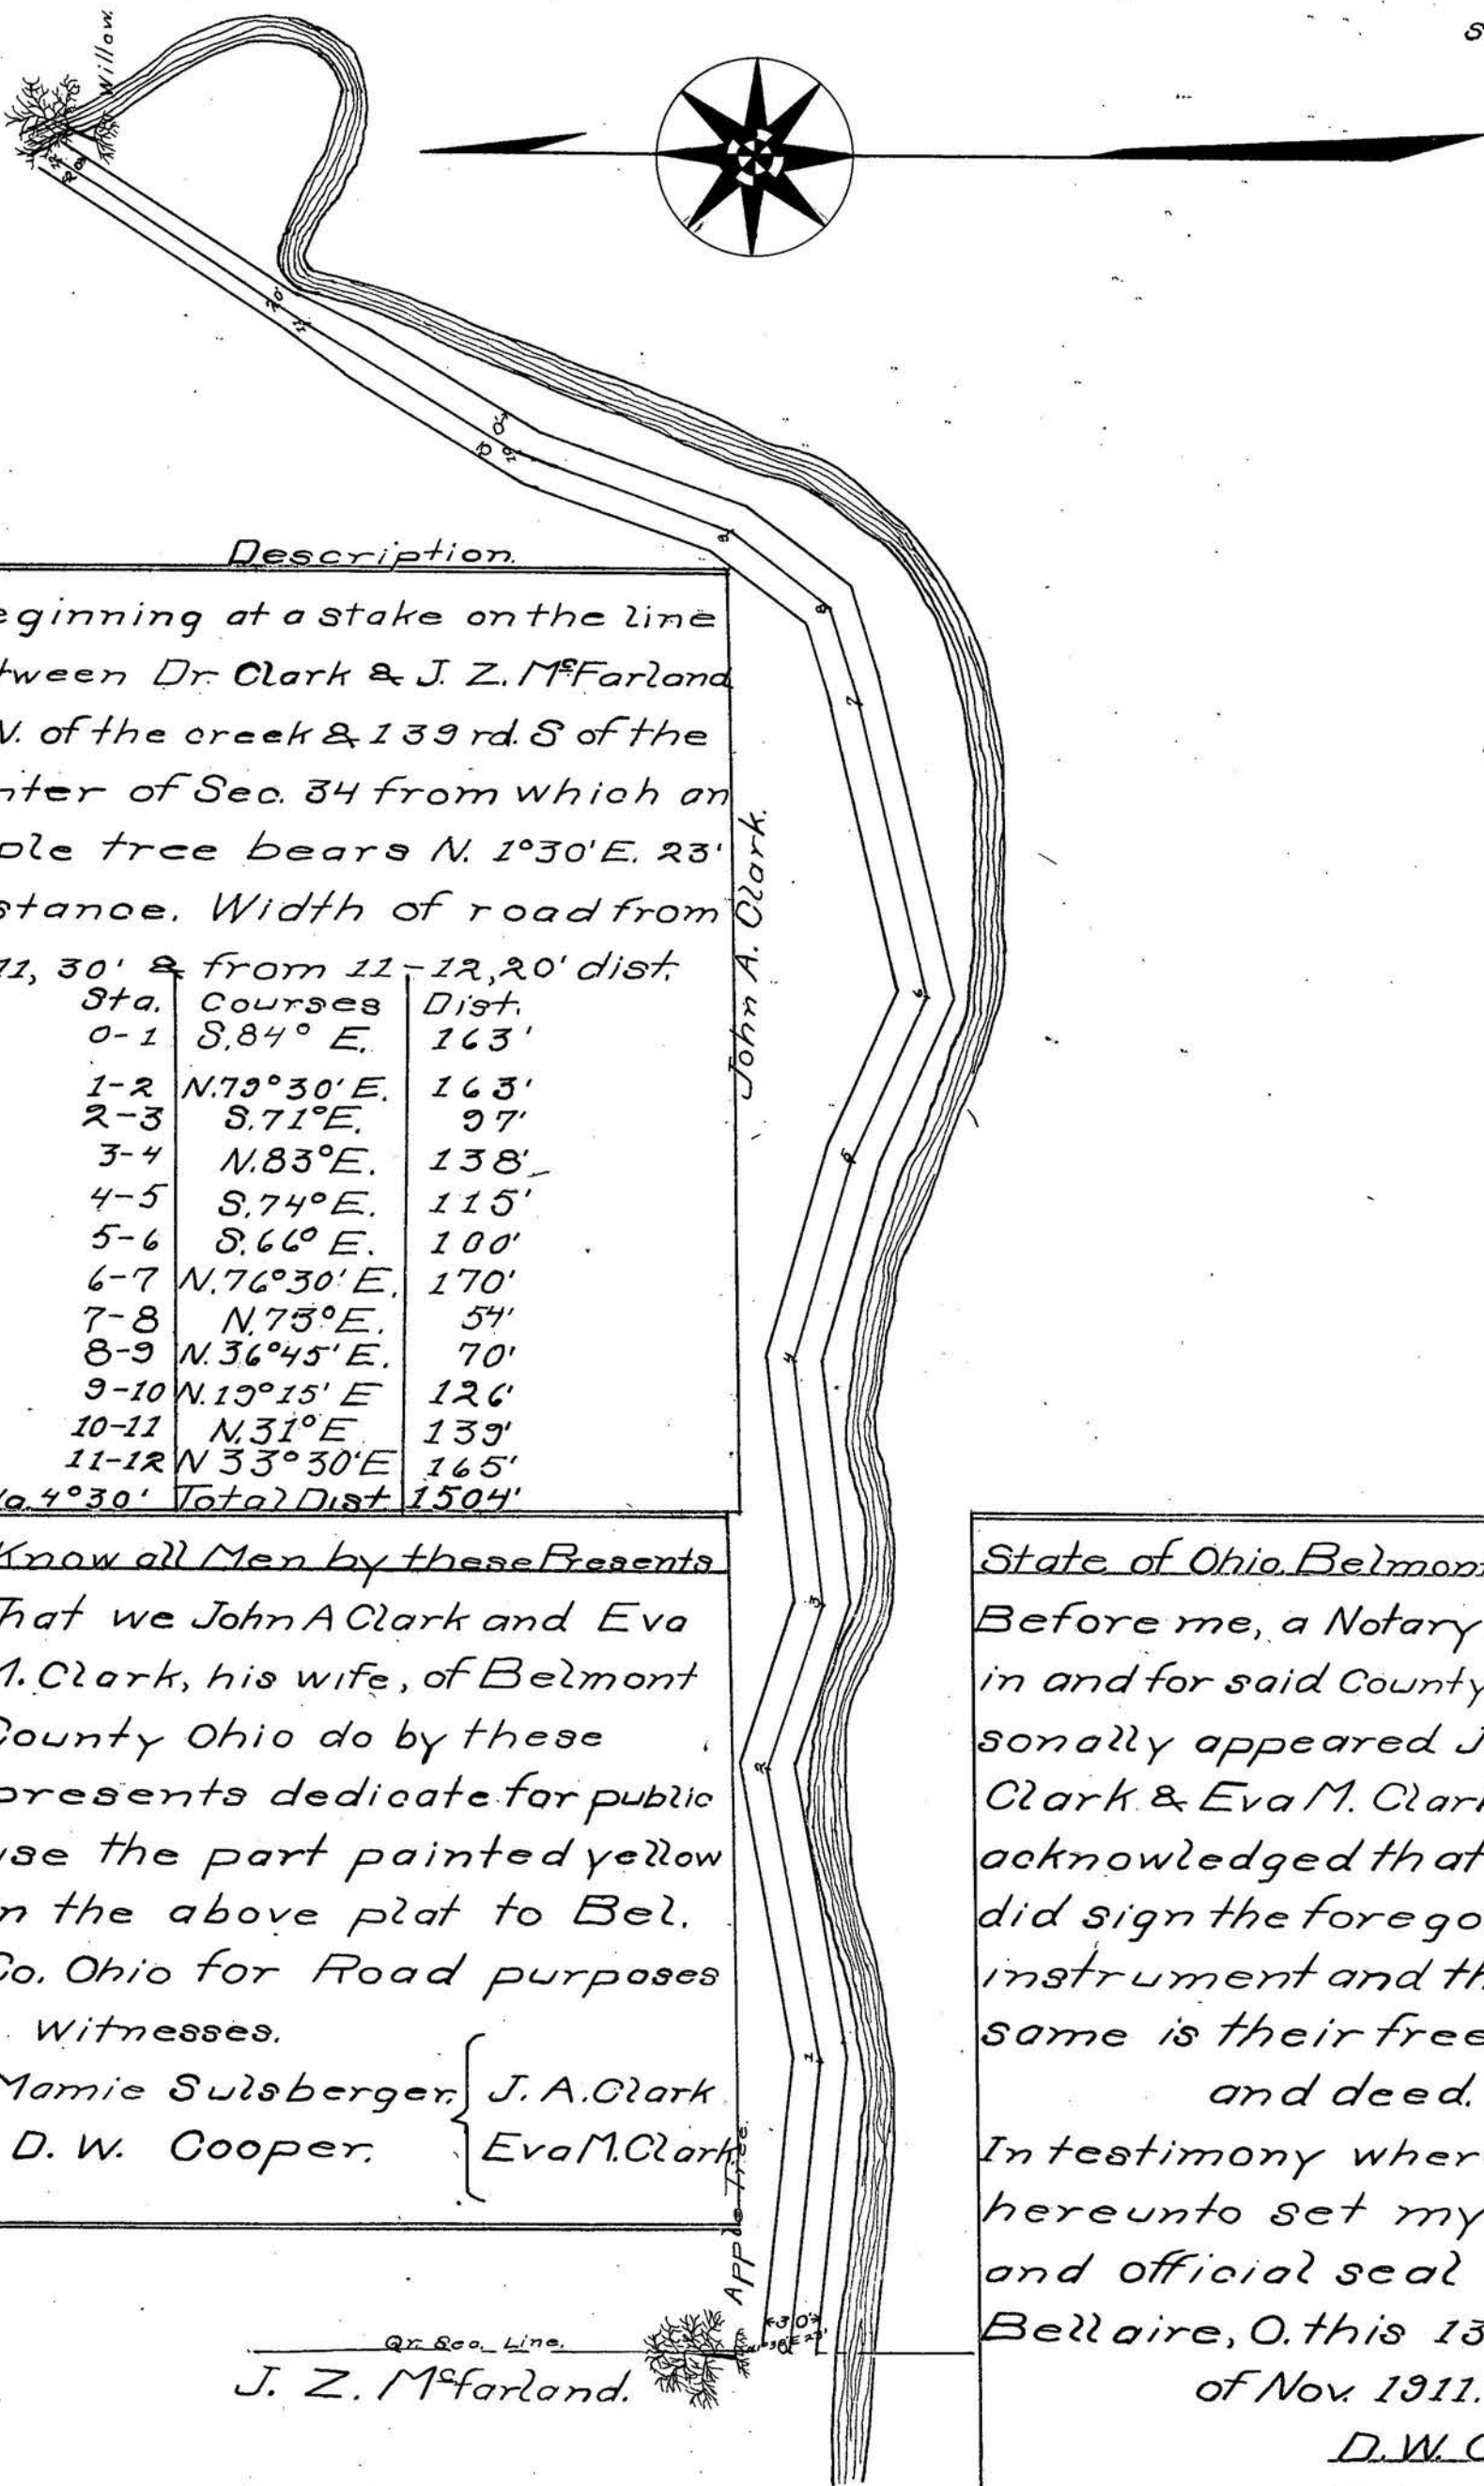 S
Willow.
12
20'
20'
11
30'
10
9
8
7
6
5
4
3
2
1
John A. Clark.
Description.
eginning at a stake on the line
tween Dr. Clark & J. Z. McFarland
W. of the creek & 139 rd. S of the
nter of Sec. 34 from which an
ple tree bears N. 1°30' E. 23'
stance. Width of road from
11, 30' & from 11-12, 20' dist.
Sta. Courses Dist.
0-1 S. 84° E. 163'
1-2 N. 79°30' E. 163'
2-3 S. 71° E. 97'
3-4 N. 83° E. 138'
4-5 S. 74° E. 115'
5-6 S. 66° E. 100'
6-7 N. 76°30' E. 170'
7-8 N. 73° E. 54'
8-9 N. 36°45' E. 70'
9-10 N. 19°15' E 126'
10-11 N. 31° E 139'
11-12 N 33°30' E 165'
Va. 4°30' Total Dist. 1504'
Know all Men by these Presents
That we John A Clark and Eva
M. Clark, his wife, of Belmont
County Ohio do by these
presents dedicate for public
use the part painted yellow
n the above plat to Bel.
Co. Ohio for Road purposes
Witnesses.
Mamie Sulsberger. J. A. Clark
D. W. Cooper. Eva M. Clark
Apple Tree.
30'
N 1°30' E 23'
Qr. Sec. Line.
J. Z. Mcfarland.
State of Ohio, Belmont
Before me, a Notary
in and for said County
sonally appeared J
Clark & Eva M. Clark
acknowledged that
did sign the forego
instrument and th
same is their free
and deed.
In testimony wher
hereunto set my
and official seal
Bellaire, O. this 13
of Nov. 1911.
D. W. C